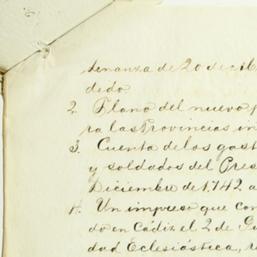 denanza de 20 de
dedo
2. Plano del nuevo
ra las Provincias in
3. Cuenta de los gast
y soldados del Pres
Diciembre de 1742 a
4. Un impreso que con
do en Cádiz el 2 de
dad Eclesiástica, r